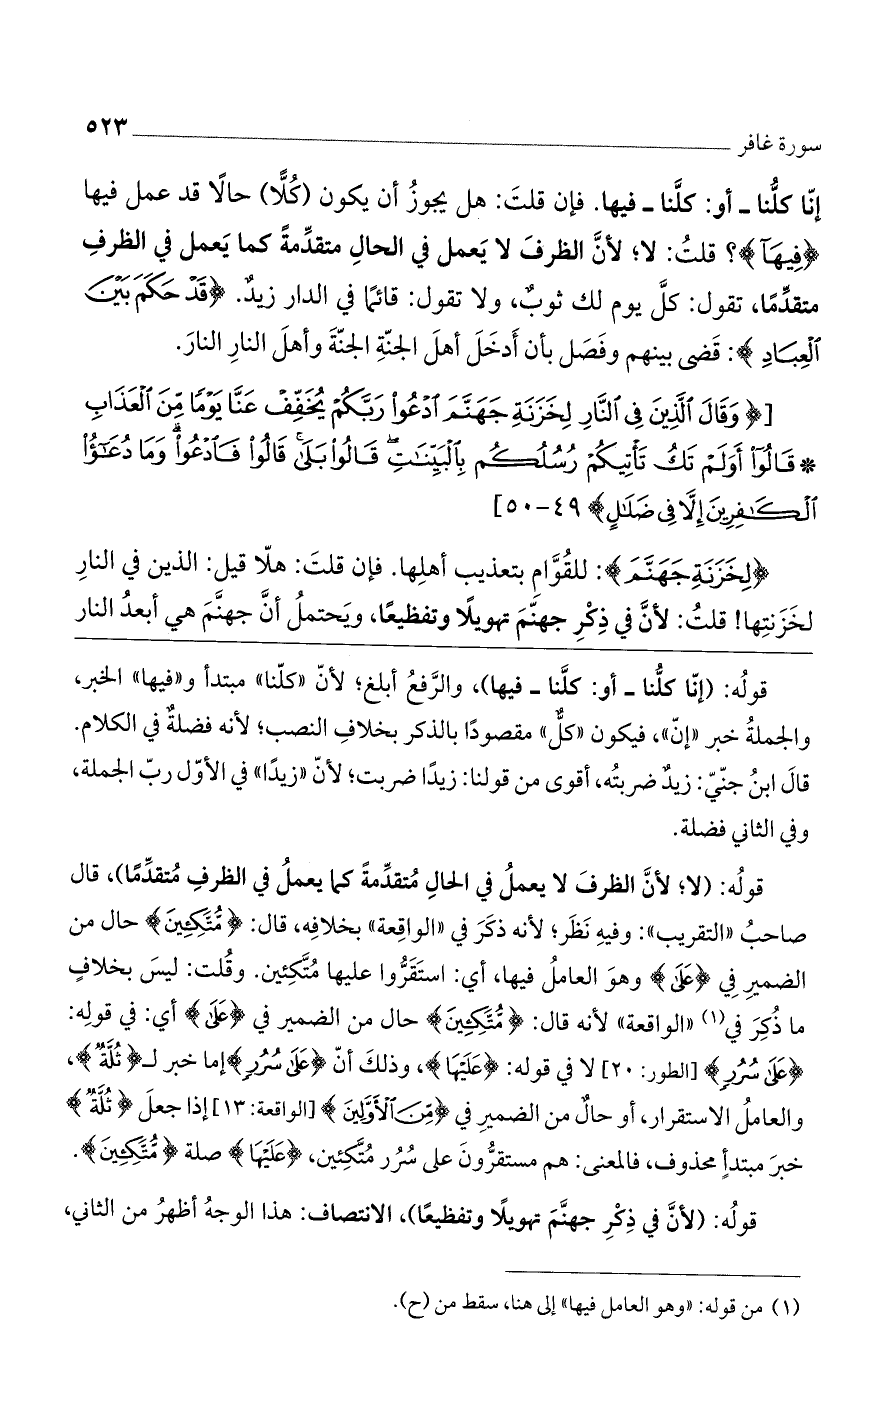 سورة غافر ٥٢٣
إنّا كلُّنا ـ أو: كلَّنا ـ فيها. فإن قلتَ: هل يجوزُ أن يكون (كُلًّا) حالًا قد عمل فيها
﴿فِيهَآ﴾؟ قلتُ: لا؛ لأنَّ الظرفَ لا يَعمل في الحالِ متقدِّمةً كما يَعمل في الظرفِ
متقدِّمًا، تقول: كلَّ يوم لك ثوبٌ، ولا تقول: قائمًا في الدار زيدٌ. ﴿قَدْ حَكَمَ بَيْنَ
ٱلْعِبَادِ﴾: قَضى بينهم وفَصَل بأن أَدخَلَ أهلَ الجنّةِ الجنّةَ وأهلَ النارِ النارَ.
[﴿وَقَالَ ٱلَّذِينَ فِي ٱلنَّارِ لِخَزَنَةِ جَهَنَّمَ ٱدْعُواْ رَبَّكُمْ يُخَفِّفْ عَنَّا يَوْمًا مِّنَ ٱلْعَذَابِ
* قَالُوٓاْ أَوَلَمْ تَكُ تَأْتِيكُمْ رُسُلُكُم بِٱلْبَيِّنَٰتِ ۖ قَالُواْ بَلَىٰ ۚ قَالُواْ فَٱدْعُواْ ۗ وَمَا دُعَٰٓؤُاْ
ٱلْكَٰفِرِينَ إِلَّا فِي ضَلَٰلٍ﴾ ٤٩-٥٠]
﴿لِخَزَنَةِ جَهَنَّمَ﴾: للقُوَّامِ بتعذيب أهلِها. فإن قلتَ: هلّا قيل: الذين في النارِ
لخَزَنتِها! قلتُ: لأنَّ في ذِكْرِ جهنَّمَ تهويلًا وتفظيعًا، ويَحتملُ أنَّ جهنَّمَ هي أبعدُ النار
قولُه: (إنّا كلُّنا ـ أو: كلَّنا ـ فيها)، والرَّفعُ أبلغ؛ لأنّ «كلّنا» مبتدأ و«فيها» الخبر،
والجملةُ خبر «إنّ»، فيكون «كلٌّ» مقصودًا بالذكر بخلافِ النصب؛ لأنه فضلةٌ في الكلام.
قالَ ابنُ جنّيّ: زيدٌ ضربتُه، أقوى من قولنا: زيدًا ضربت؛ لأنّ «زيدًا» في الأوّل ربّ الجملة،
وفي الثاني فضلة.
قولُه: (لا؛ لأنَّ الظرفَ لا يعملُ في الحالِ مُتقدِّمةً كما يعملُ في الظرفِ مُتقدِّمًا)، قال
صاحبُ «التقريب»: وفيهِ نَظَر؛ لأنه ذكَرَ في «الواقِعة» بخلافِه، قال: ﴿مُّتَّكِـِٔينَ﴾ حال من
الضميرِ فِي ﴿عَلَىٰ﴾ وهوَ العاملُ فيها، أي: استَقَرُّوا عليها مُتَّكِئين. وقُلت: ليسَ بخلافٍ
ما ذُكِرَ في(١) «الواقعة» لأنه قال: ﴿مُّتَّكِـِٔينَ﴾ حال من الضمير في ﴿عَلَىٰ﴾ أي: في قولِه:
﴿عَلَىٰ سُرُرٍ﴾ [الطور: ٢٠] لا في قوله: ﴿عَلَيْهَا﴾، وذلكَ أنّ ﴿عَلَىٰ سُرُرٍ﴾ إما خبر لـ﴿ثُلَّةٌ﴾،
والعاملُ الاستقرار، أو حالٌ من الضميرِ في ﴿مِّنَ ٱلْأَوَّلِينَ﴾ [الواقعة: ١٣] إذا جعلَ ﴿ثُلَّةٌ﴾
خبرَ مبتدأٍ محذوف، فالمعنى: هم مستقرُّونَ على سُرُر مُتَّكِئين، ﴿عَلَيْهَا﴾ صلة ﴿مُّتَّكِـِٔينَ﴾.
قولُه: (لأنَّ في ذِكْرِ جهنَّمَ تهويلًا وتفظيعًا)، الانتصاف: هذا الوجهُ أظهرُ من الثاني،
(١) من قوله: «وهو العامل فيها» إلى هنا، سقط من (ح).